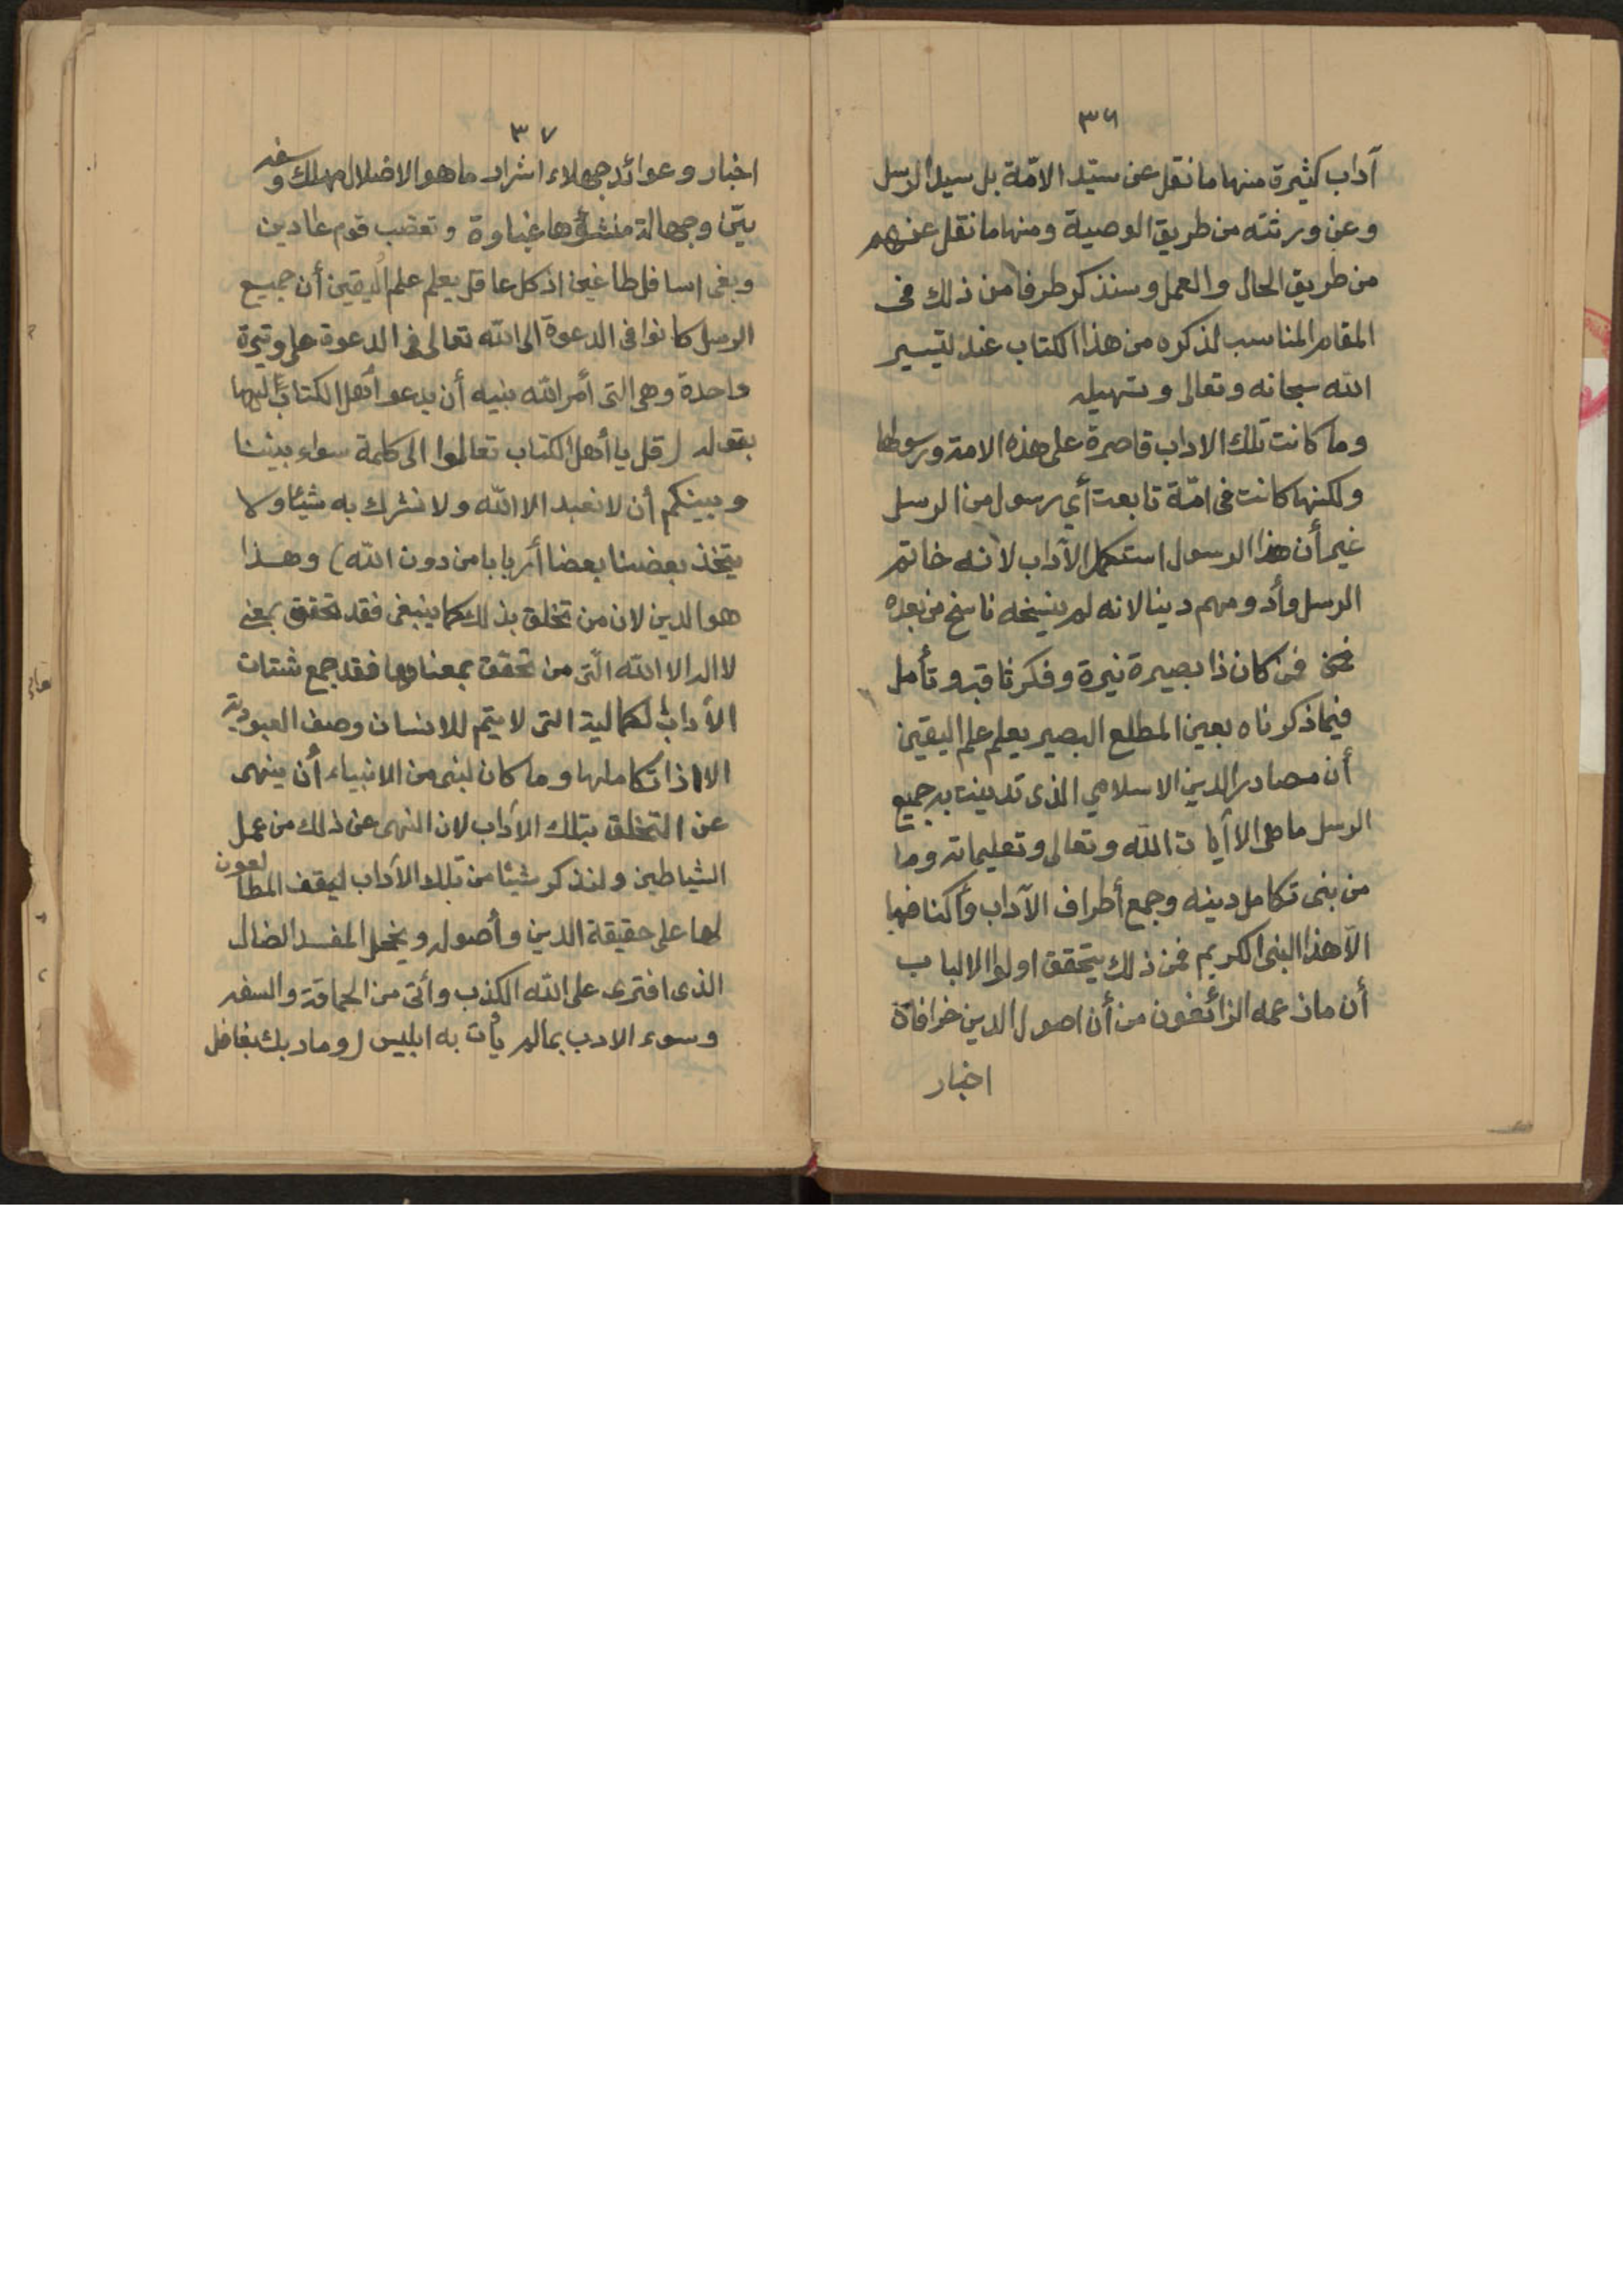 ٣٦
آداب كثيرة منها ما نقل عن سيّد الامّة بل سيد الرسل
وعن ورثته من طريق الوصية ومنها ما نقل عنهم
من طريق الحال والعمل وسنذكر طرفا من ذلك فى
المقام المناسب لذكره من هذا الكتاب عند تيسير
الله سبحانه وتعالى وتسهيله
وما كانت تلك الاداب قاصرة على هذه الامة ورسولها
ولكنها كانت فى امّة تابعت أي رسول من الرسل
غير أن هذا الرسول استكمل الآداب لانه خاتم
الرسل وأدومهم دينا لانه لم ينسخه ناسخ من بعده
فمن كان ذا بصيرة نيرة وفكر ثاقب وتأمل
فيما ذكرناه بعين المطلع البصير يعلم علم اليقين
أن مصادر الدين الاسلامي الذى تدينت به جميع
الرسل ما هى الا آيات الله وتعالى وتعليماته وما
من نبى تكامل دينه وجمع أطراف الآداب وأكنافها
الّا هذا النبى الكريم فمن ذلك يتحقق اولوا الالباب
أن ما زعمه الزائغون من أن اصول الدين خرافاة
اخبار
٣٧
اخبار وعوائد جهلاء اشرار ما هو الا ضلال مهلك وسفه
بيّن وجهالة منشؤها غباوة وتعصب قوم عادين
وبغى اسافل طاغين اذ كل عاقل يعلم علم اليقين أن جميع
الرسل كانوا فى الدعوة الى الله تعالى فى الدعوة على وتيرة
واحدة وهى التى أمر الله نبيه أن يدعو أهل الكتاب اليها
بقوله (قل يا أهل الكتاب تعالوا الى كلمة سواء بيننا
وبينكم أن لا نعبد الا الله ولا نشرك به شيئا ولا
يتخذ بعضنا بعضا أربابا من دون الله) وهذا
هو الدين لان من تخلق بذلك كما ينبغى فقد تحقق بمعنى
لا اله الا الله الّتى من تحقق بمعناها فقد جمع شتات
الأداب الكمالية التى لا يتم للانسان وصف العبودية
الا اذا تكاملها وما كان لنبى من الانبياء أن ينهى
عن التخلق بتلك الآداب لان النهى عن ذلك من عمل
الشياطين ولنذكر شيئا من تلك الآداب ليقف المطالعون
لها على حقيقة الدين وأصوله ويخجل المفسد الضال
الذى افترى على الله الكذب وأتى من الحماقة والسفه
وسوء الادب بما لم يأت به ابليس (وما ربك بغافل